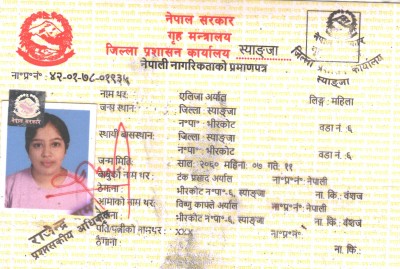 नेपाल सरकार
गृह मन्त्रालय
जिल्ला प्रशासन कार्यालय स्याङ्जा
नेपाली नागरिकताको प्रमाणपत्र
ना॰प्र॰नं॰ ४२-०१-७८-०१९३५
नाम थर: एलिजा अर्याल लिङ्ग: महिला
जन्म स्थान: जिल्ला : स्याङ्जा
न॰पा॰ : भीरकोट वडा नं :६
स्थायी बासस्थान: जिल्ला : स्याङ्जा
न॰पा॰ : भीरकोट वडा नं :६
जन्म मिति: साल: २०६० महिना: ०७ गते: ११
बाबुको नाम थर: टंक प्रसाद अर्याल ना॰प्र॰नं॰: नेपाली
ठेगाना: भीरकोट न॰पा॰-६, स्याङ्जा ना॰ कि: वंशज
आमाको नाम थर: विष्णु काफ्ले अर्याल ना॰प्र॰नं॰: नेपाली
ठेगाना: भीरकोट न॰पा॰-६, स्याङ्जा ना॰ कि: वंशज
पति/पत्नीको नामथर: xxx ना॰प्र॰नं॰:
ठेगाना: ना॰ कि:
नेपाल सरकार
जिल्ला प्रशासन कार्यालय
स्याङ्जा
राजेन्द्र
प्रशासकीय अधिकृत